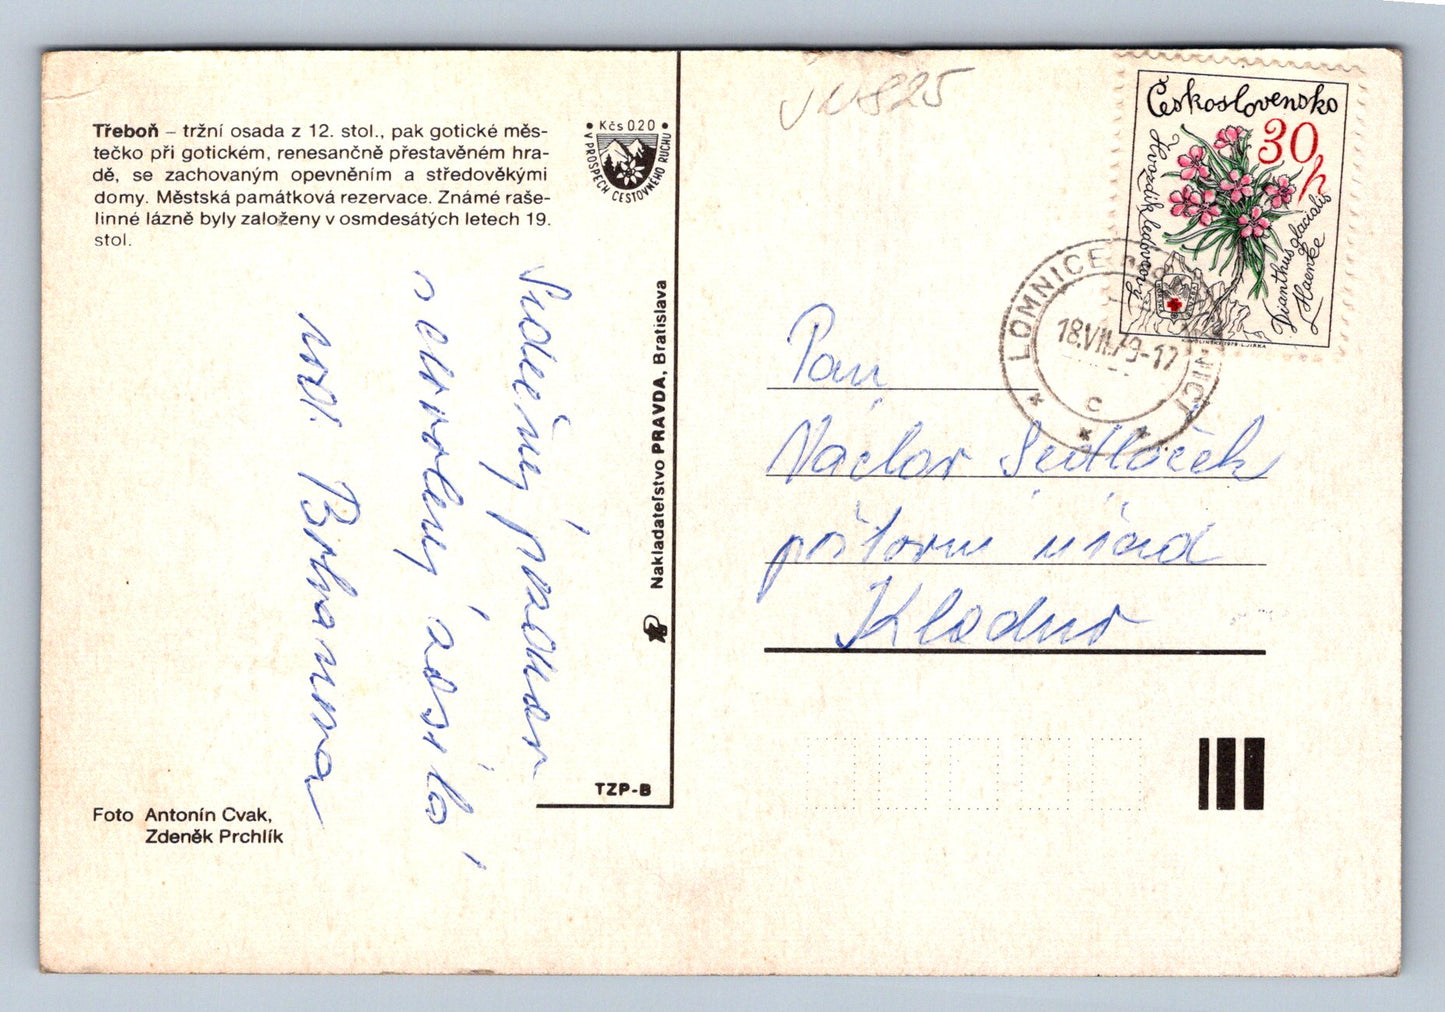 Třeboň – tržní osada z 12. stol., pak gotické měs-
tečko při gotickém, renesančně přestavěném hra-
dě, se zachovaným opevněním a středověkými
domy. Městská památková rezervace. Známé raše-
linné lázně byly založeny v osmdesátých letech 19.
stol.
Kčs 0.20
V PROSPĚCH CESTOVNÉHO RUCHU
Srdečný pozdrav
z dovolený zasílá
rod.
Nakladateľstvo PRAVDA, Bratislava
TZP-B
Foto Antonín Cvak,
Zdeněk Prchlík
825
Československo
30 h
Hvozdík ledovcový
Dianthus glacialis
Haenke
LOMNICE NICÍ
18.VII.79-17
c
Pan
Václav Sedláček
poštovní úřad
Kladno